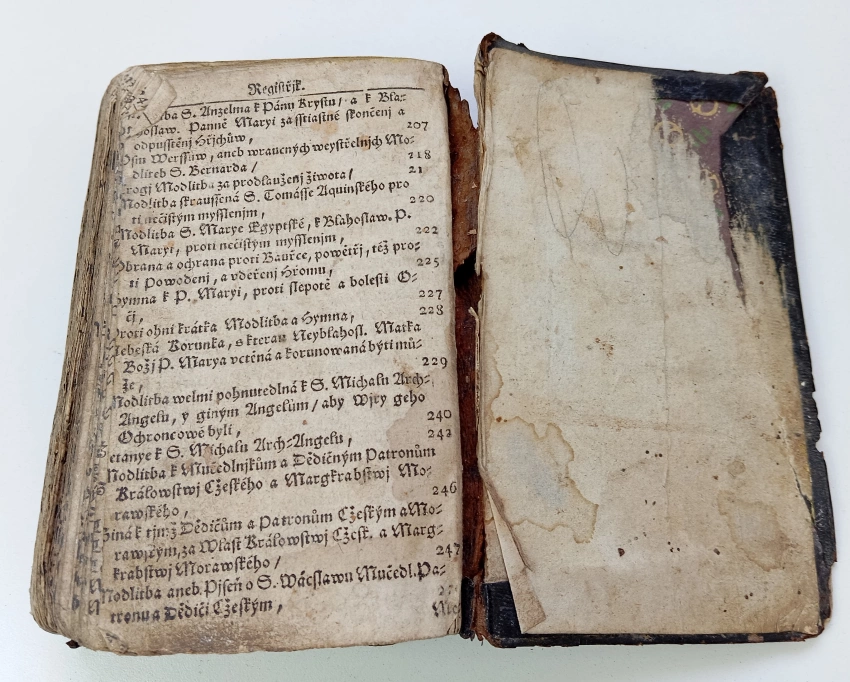 Registřjk.
S. Anzelma k Pánu Krystu/ a k Bla-
Panně Maryi za sstiastné skončenj a
odpusstěnj Hřjchůw, 207
Werssůw, aneb wraucných weystřelných Mo-
dliteb S. Bernarda / 218
Modlitba za prodlauženj žiwota, 21
Modlitba skraussená S. Tomásse Aquinského pro
ti nečistým mysslenjm, 220
Modlitba S. Marye Egyptské, k Blahoslaw. P.
Maryi, proti nečistým mysslenjm, 222
Obrana a ochrana proti Bauřce, powětřj, též pro-
ti Powodenj, a vdeřenj Hromu, 225
Hymna k P. Maryi, proti slepotě a bolesti O-
čj, 227
Proti ohni krátka Modlitba a Hymna, 228
Nebeská Korunka, s kterau Neyblahosl. Matka
Božj P. Marya vctěná a korunowaná býti mů-
že, 229
Modlitba welmi pohnutedlná k S. Michalu Arch-
Angelu, y giným Angelům/ aby Wjry geho
Ochroncowé byli, 240
Letanye k S. Michalu Arch-Angelu, 242
Modlitba k Mučedlnjkům a Dědičným Patronům
Králowstwj Cžeského a Margkrabstwj Mo-
rawského, 246
Giná k týmž Dědičům a Patronům Cžeským a Mo-
rawským, za Wlast Králowstwj Cžesk. a Marg-
krabstwj Morawského / 247
Modlitba aneb Pjseň o S. Wácslawu Mučedl. Pa-
tronu a Dědiči Cžeským,